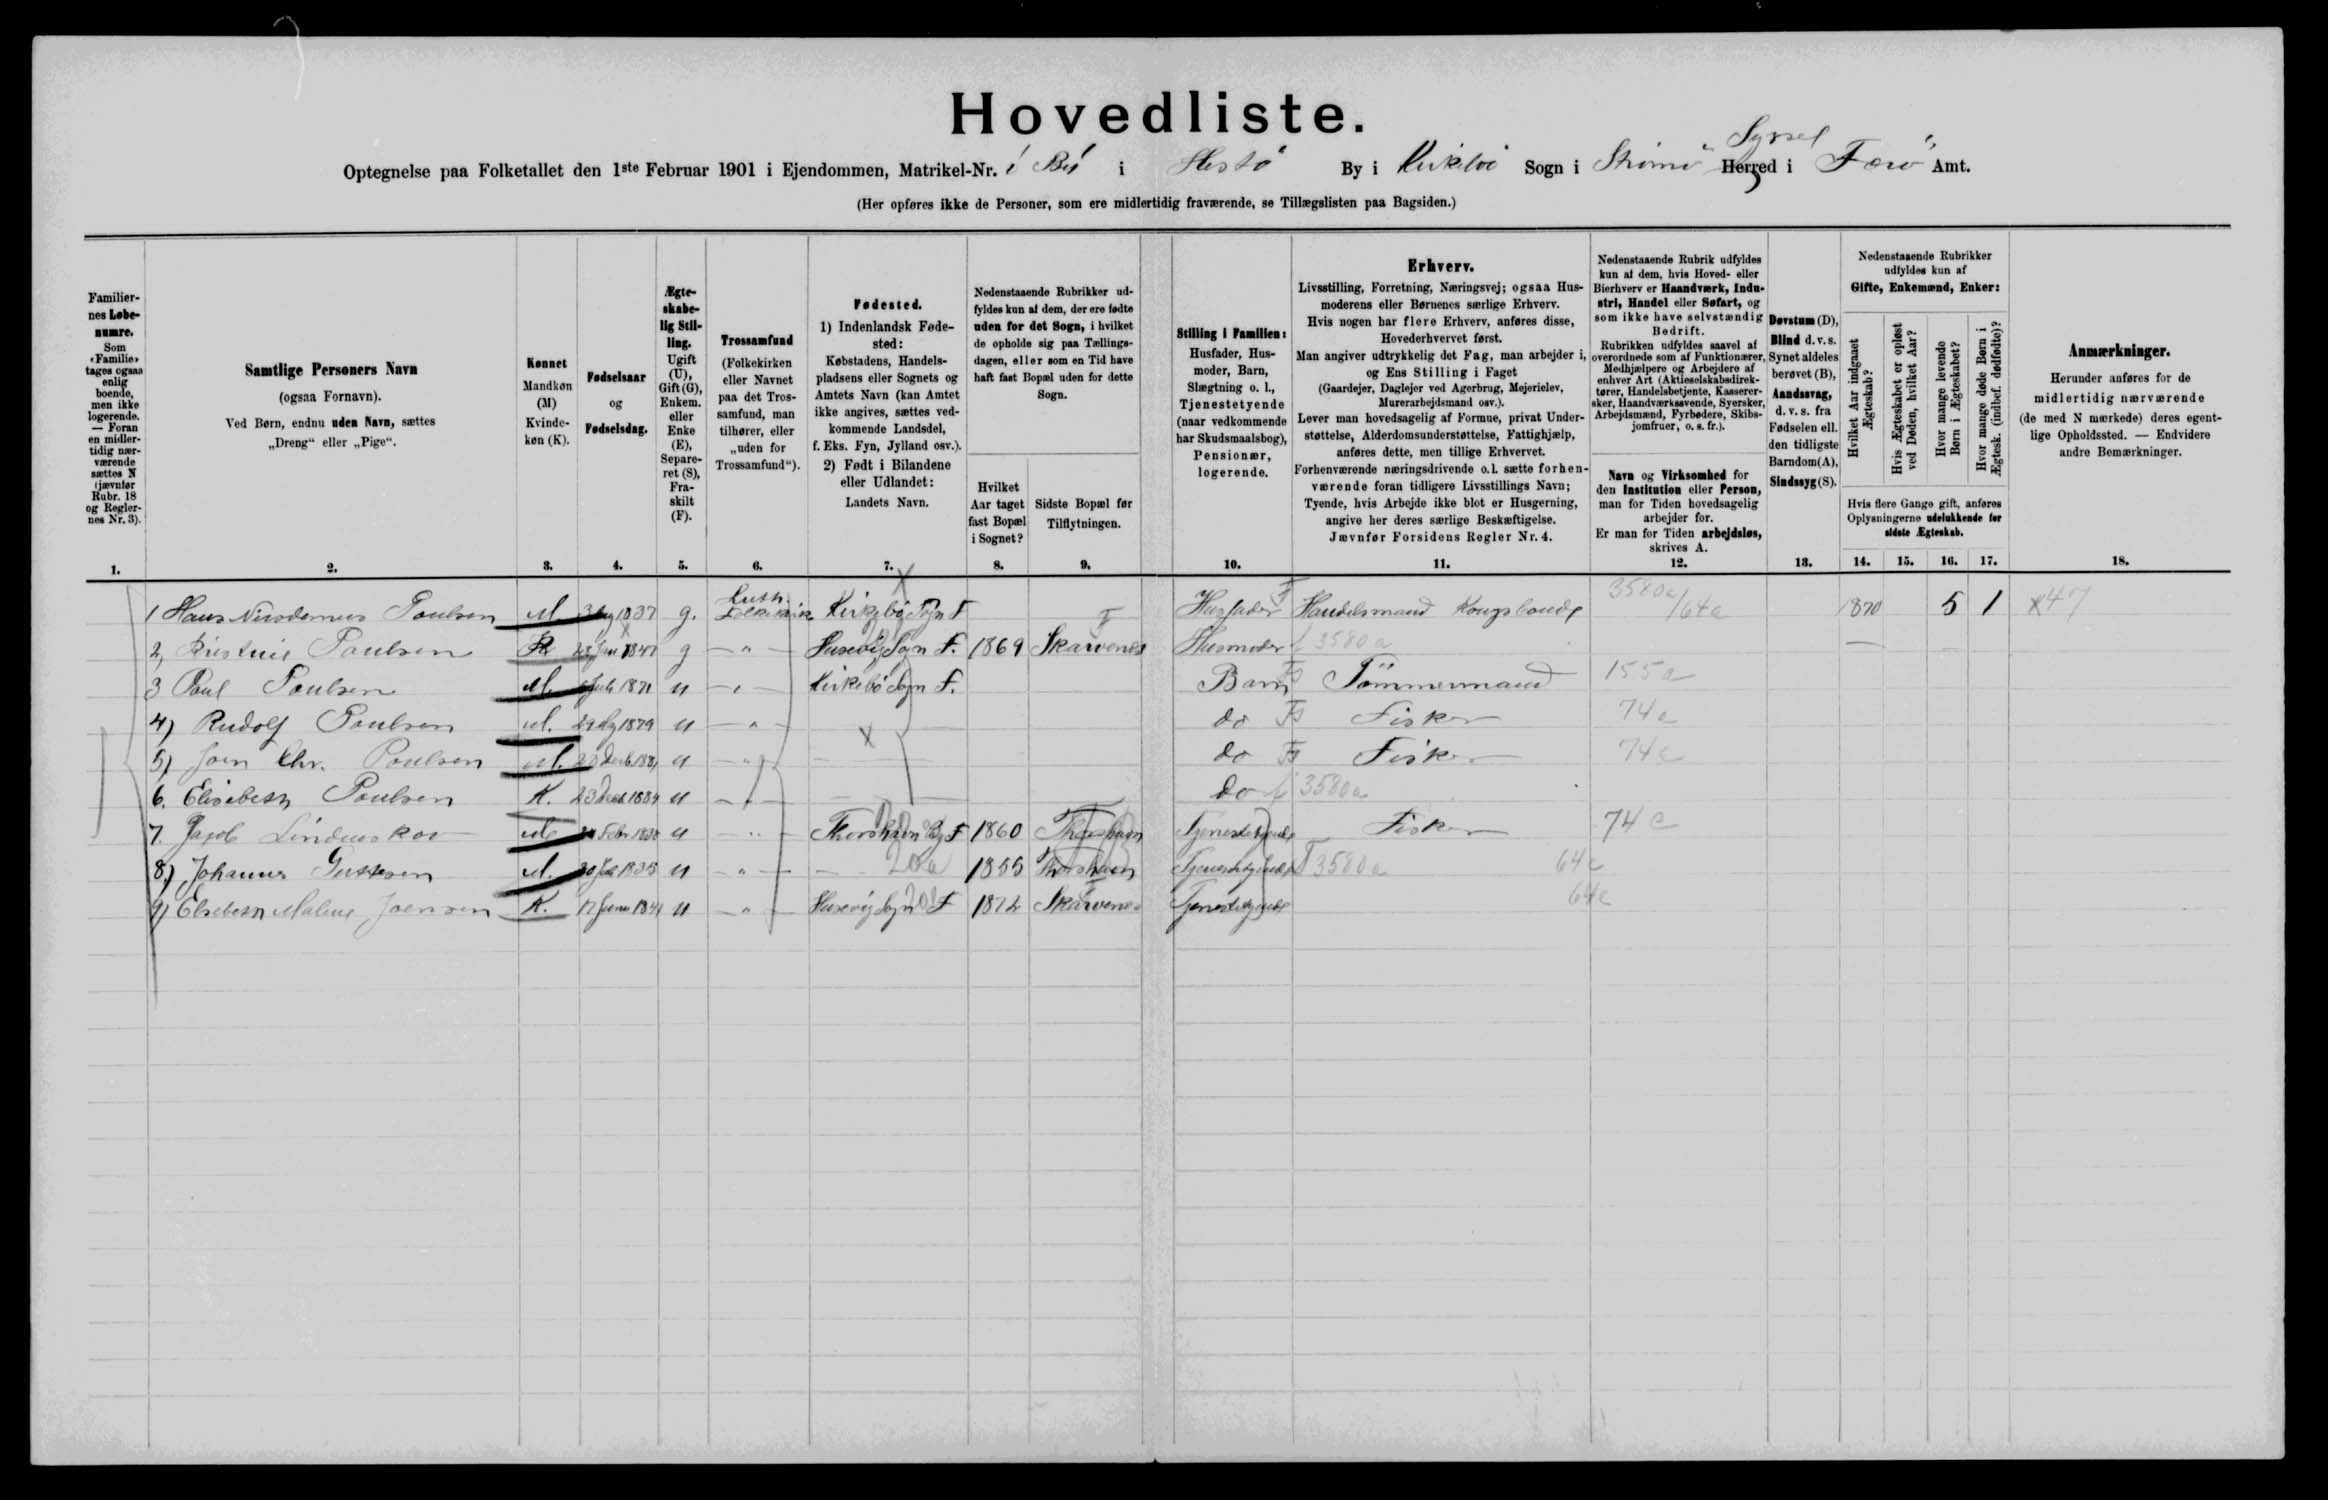 Hovedliste.
Optegnelse paa Folketallet den 1ste Februar 1901 i Ejendommen, Matrikel-Nr. í Bö i Hestö By i Kirkebö Sogn i Strömö Syssel Herred i Færö Amt.
(Her opføres ikke de Personer, som ere midlertidig fraværende, se Tillægslisten paa Bagsiden.)
Familiernes Løbenumre. Som «Familie» tages ogsaa enlig boende, men ikke logerende. — Foran en midlertidig nærværende sættes N (jævnfør Rubr. 18 og Reglernes Nr. 3).
Samtlige Personers Navn (ogsaa Fornavn). Ved Børn, endnu uden Navn, sættes „Dreng“ eller „Pige“.
Kønnet Mandkøn (M) Kvindekøn (K).
Fødselsaar og Fødselsdag.
Ægteskabelig Stilling. Ugift (U), Gift (G), Enkem. eller Enke (E), Separeret (S), Fraskilt (F).
Trossamfund (Folkekirken eller Navnet paa det Trossamfund, man tilhører, eller „uden for Trossamfund“).
Fødested. 1) Indenlandsk Fødested: Købstadens, Handelspladsens eller Sognets og Amtets Navn (kan Amtet ikke angives, sættes vedkommende Landsdel, f. Eks. Fyn, Jylland osv.). 2) Født i Bilandene eller Udlandet: Landets Navn.
Nedenstaaende Rubrikker udfyldes kun af dem, der ere fødte uden for det Sogn, i hvilket de opholde sig paa Tællingsdagen, eller som en Tid have haft fast Bopæl uden for dette Sogn.
Hvilket Aar taget fast Bopæl i Sognet?
Sidste Bopæl før Tilflytningen.
Stilling i Familien: Husfader, Husmoder, Barn, Slægtning o. l., Tjenestetyende (naar vedkommende har Skudsmaalsbog), Pensionær, logerende.
Erhverv.
Livsstilling, Forretning, Næringsvej; ogsaa Husmoderens eller Børnenes særlige Erhverv.
Hvis nogen har flere Erhverv, anføres disse, Hovederhvervet først.
Man angiver udtrykkelig det Fag, man arbejder i, og Ens Stilling i Faget
(Gaardejer, Daglejer ved Agerbrug, Mejerielev, Murerarbejdsmand osv.).
Lever man hovedsagelig af Formue, privat Understøttelse, Alderdomsunderstøttelse, Fattighjælp, anføres dette, men tillige Erhvervet.
Forhenværende næringsdrivende o.l. sætte forhenværende foran tidligere Livsstillings Navn; Tyende, hvis Arbejde ikke blot er Husgerning, angive her deres særlige Beskæftigelse.
Jævnfør Forsidens Regler Nr. 4.
Nedenstaaende Rubrik udfyldes kun af dem, hvis Hoved- eller Bierhverv er Haandværk, Industri, Handel eller Søfart, og som ikke have selvstændig Bedrift.
Rubrikken udfyldes saavel af overordnede som af Funktionærer, Medhjælpere og Arbejdere af enhver Art (Aktieselskabsdirektører, Handelsbetjente, Kassererskør, Haandværkssvende, Syersker, Arbejdsmænd, Fyrbødere, Skibsjomfruer, o. s. fr.).
Navn og Virksomhed for den Institution eller Person, man for Tiden hovedsagelig arbejder for.
Er man for Tiden arbejdsløs, skrives A.
Døvstum (D), Blind d. v. s. Synet aldeles berøvet (B), Aandssvag, d. v. s. fra Fødselen ell. den tidligste Barndom (A), Sindssyg (S).
Nedenstaaende Rubrikker udfyldes kun af Gifte, Enkemænd, Enker:
Hvilket Aar indgaaet Ægteskab?
Hvis Ægteskabet er opløst ved Døden, hvilket Aar?
Hvor mange levende Børn i Ægteskabet?
Hvor mange døde Børn i Ægtesk. (indbef. dødfødte)?
Hvis flere Gange gift, anføres Oplysningerne udelukkende for sidste Ægteskab.
Anmærkninger.
Herunder anføres for de midlertidig nærværende (de med N mærkede) deres egentlige Opholdssted. — Endvidere andre Bemærkninger.
1. 2. 3. 4. 5. 6. 7. 8. 9. 10. 11. 12. 13. 14. 15. 16. 17. 18.
1 Hans Poulsen M 1837 g. Luth. Folkekirke Kirkebö Sogn F Husfader Handelsmand 3580a/64a 1870 5 1 x47
2, Poulsen K g " Husevig Sogn F. 1869 Skarvenes Husmoder 3580a
3 Paul Poulsen M. 1871 u " Kirkebö Sogn F. Barn Tömmermand 155a
4) Rudolf Poulsen M. 29 1879 u " do Fisker 74a
5) Joen Chr. Poulsen M. u " do Fisker 74c
6. Elisebeth Poulsen K. 23 1884 u " do 3580a
7. Jacob Lindenskov M Febr u " Thorshavn F 1860 Thorshavn Tjenestetyende Fisker 74c
8) Johannes M. 1835 u " 1855 Thorshavn Tjenestetyende 3580a 64c
9) Elsebeth Malene Joensen K. 17 u " Husevig Sogn F 1872 Skarvenes Tjenestetyende 64c